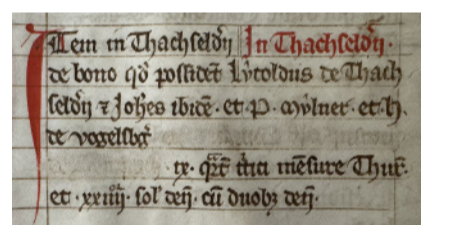 Item in Thachſeldn̄ In Thachſeldn̄ ·
de bono qd̄ poſſidet Lytoldus de Thach
ſeldn̄ ⁊ Joh̄es ibidē · et · P · mylner · et · H ·
de vogelsbg̃
ix · qr̄t tͥtici mēſure Thur̄ ·
et · xxiiij · ſol' den̄ · cū duobꝫ den̄ ·